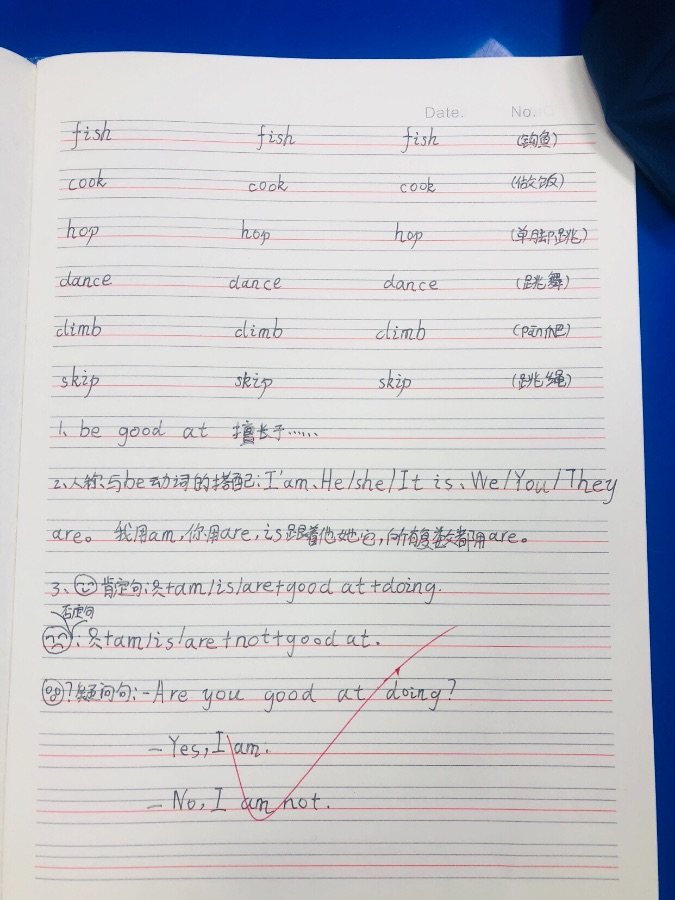 Date. No.
fish fish fish (钓鱼)
cook cook cook (做饭)
hop hop hop (单脚跳)
dance dance dance (跳舞)
climb climb climb (攀爬)
skip skip skip (跳绳)
1、be good at 擅长于……
2、人称与be动词的搭配:I'am、He/she/It is、We/You/They
are。 我用am,你用are,is跟着他她它,所有复数都用are。
3、肯定句:人+am/is/are+good at+doing.
否定句
:人+am/is/are+not+good at.
?疑问句:-Are you good at doing?
-Yes, I am.
-No, I am not.